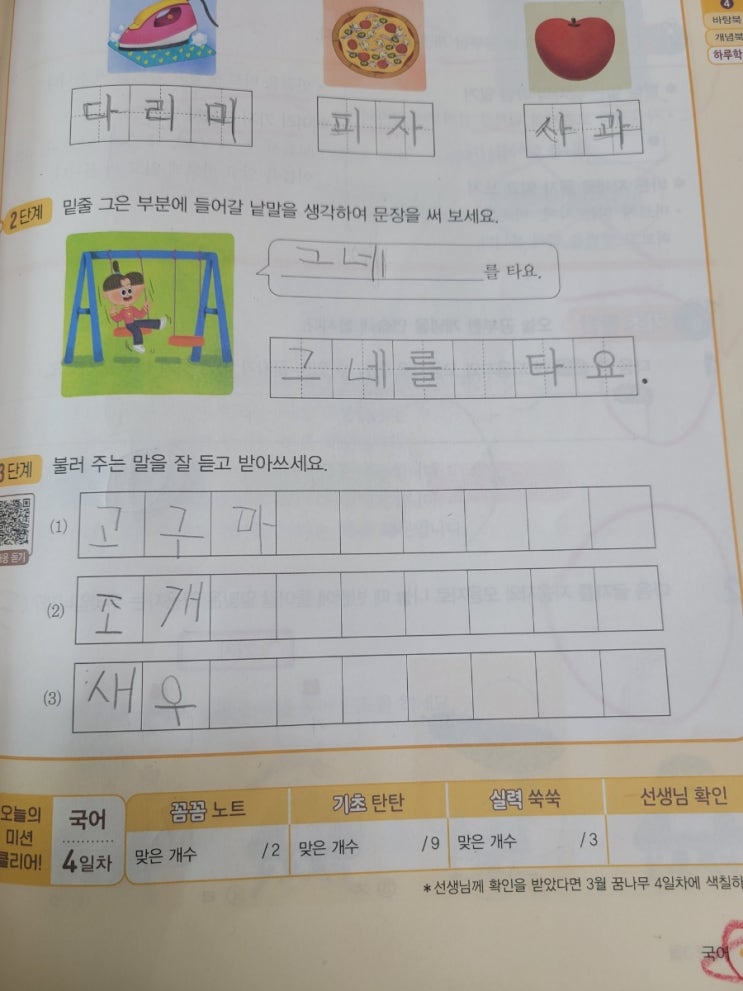 4
바탕북
개념북
하루학
다리미 피자 사과
2단계 밑줄 그은 부분에 들어갈 낱말을 생각하여 문장을 써 보세요.
그네 를 타요.
그네를 타요.
3단계 불러 주는 말을 잘 듣고 받아쓰세요.
(1) 고구마
듣기
(2) 조개
(3) 새우
오늘의 미션 클리어!
국어
4일차
꼼꼼 노트 기초 탄탄 실력 쑥쑥 선생님 확인
맞은 개수 /2 맞은 개수 /9 맞은 개수 /3
*선생님께 확인을 받았다면 3월 꿈나무 4일차에 색칠하
국어